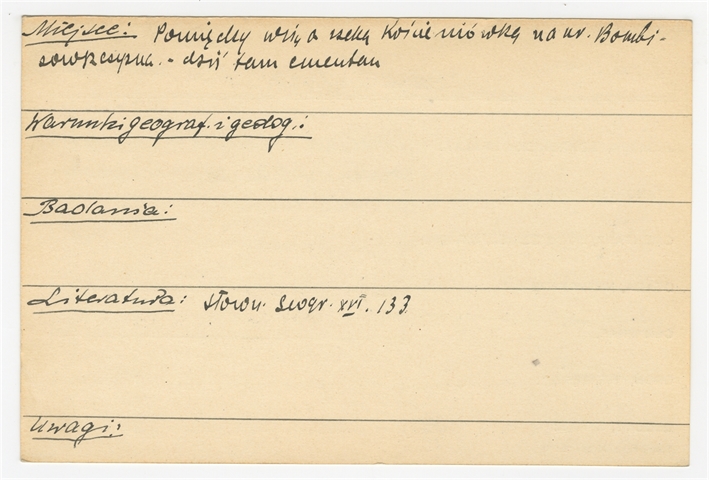 Miejsce: Pomiędzy wsią a rzeką Kościeniówką na ur. Bombi-
- dziś tam cmentarz
Warunki geograf. i geolog.:
Badania:
Literatura: Słown. Geogr. XVI. 133
Uwagi: